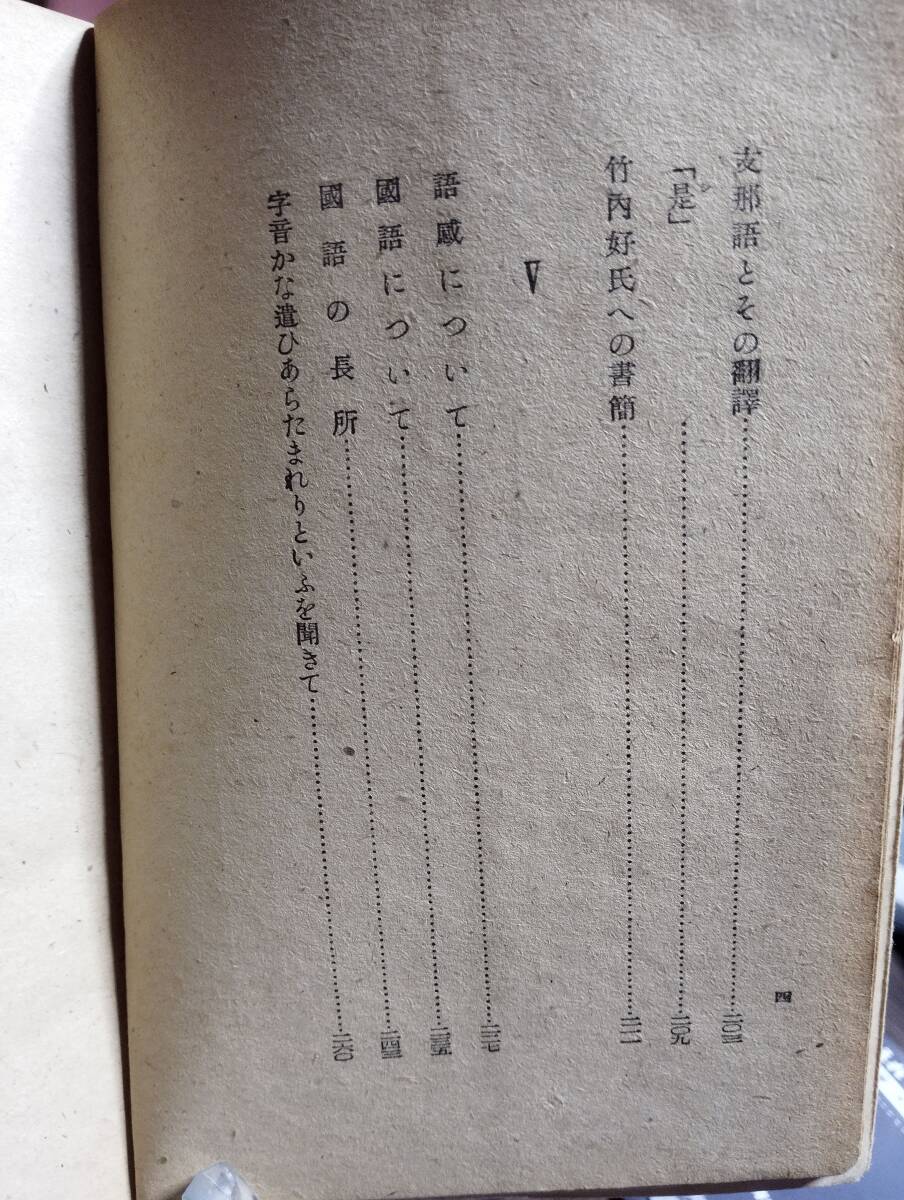 四
支那語とその翻譯……二〇三
「是」……二〇九
竹內好氏への書簡……二一一
Ⅴ
語感について……二二七
國語について……二三五
國語の長所……二四三
字音かな遣ひあらたまれりといふを聞きて……二六〇